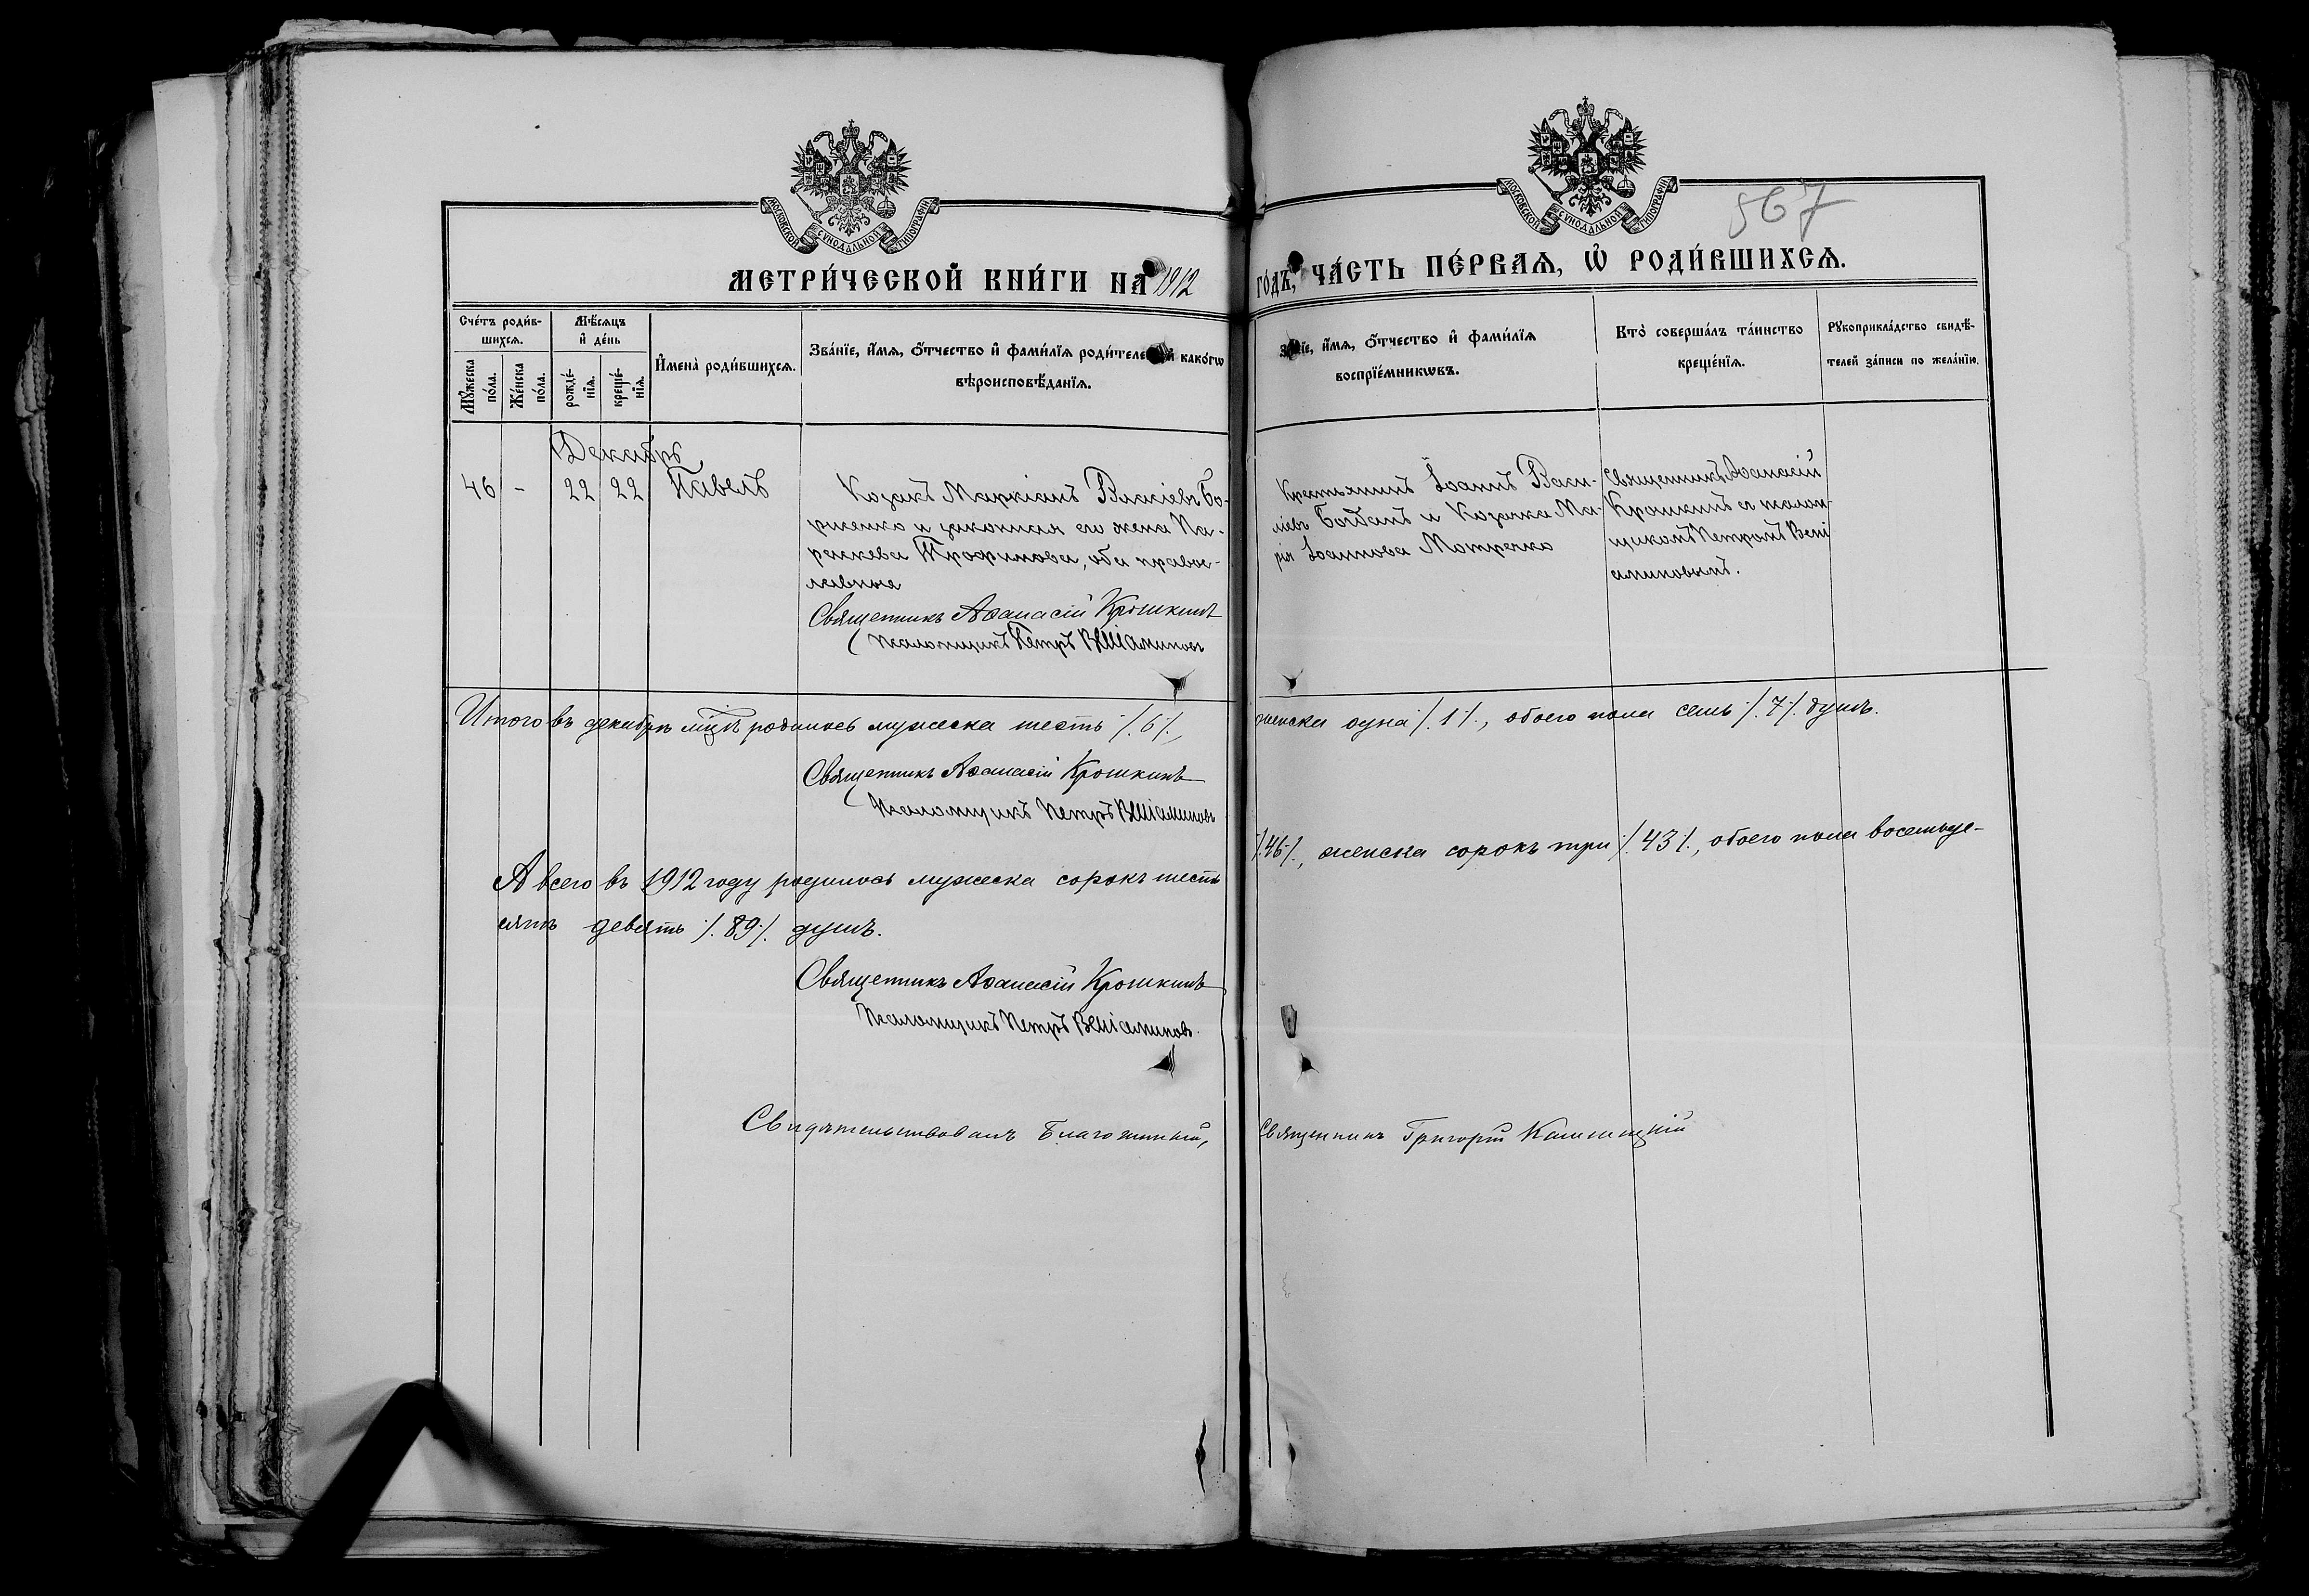 МОСКОВСКОЙ СУНОДАЛЬНОЙ ТИПОГРАФІИ
МОСКОВСКОЙ СУНОДАЛЬНОЙ ТИПОГРАФІИ
567
МЕТРИ́ЧЕСКОЙ КНИ́ГИ НА 1912 ГО́ДЪ, ЧА́СТЬ ПЕ́РВАЯ, Ѡ РОДИ́ВШИХСЯ.
Сче́тъ роди́в-
шихся.
Мꙋ́жеска
по́ла.
Же́нска
по́ла.
Мѣ́сяцъ
и҆ де́нь
рожде́-
нїя.
креще́-
нїя.
И҆мена̀ роди́вшихся.
Зва́нїе, и҆́мя, ѻ҆́тчество и҆ фами́лїя роди́телей, и҆ како́гѡ
вѣроисповѣ́данїя.
Зва́нїе, и҆́мя, ѻ҆́тчество и҆ фами́лїя
воспрїе́мникѡвъ.
Кто̀ соверша́лъ та́инство
креще́нїя.
Рꙋкоприкла́дство свидѣ́-
телей за́писи по жела́нїю.
Декабрь
46 - 22 22 Павелъ
Козакъ Маркіанъ Власіевъ Бо-
рисенко и законная его жена Па-
раскева Трофимова, оба правос-
лавные
Священникъ Аѳанасій Крошкинъ
Псаломщикъ Петръ Веніаминовъ
Крестьянинъ Іоаннъ Васи-
ліевъ Богданъ и Козачка Ма-
рія Іоаннова Мотречко
Священникъ Аѳанасій
Крошкинъ съ псалом-
щикомъ Петромъ Вені
аминовымъ.
Итого въ декабрѣ мцѣ родилось мужеска шесть /.6/., женска одна /.1/., обоего пола семь /.7/. душъ.
Священникъ Аѳанасій Крошкинъ
Псаломщикъ Петръ Веніаминовъ
А всего въ 1912 году родилось мужеска сорокъ шесть /.46/., женска сорокъ три /.43/., обоего пола восемьде-
сятъ девять /.89/. душъ.
Священникъ Аѳанасій Крошкинъ
Псаломщикъ Петръ Веніаминовъ.
Свидѣтельствовалъ Благочинный, Священникъ Григорій